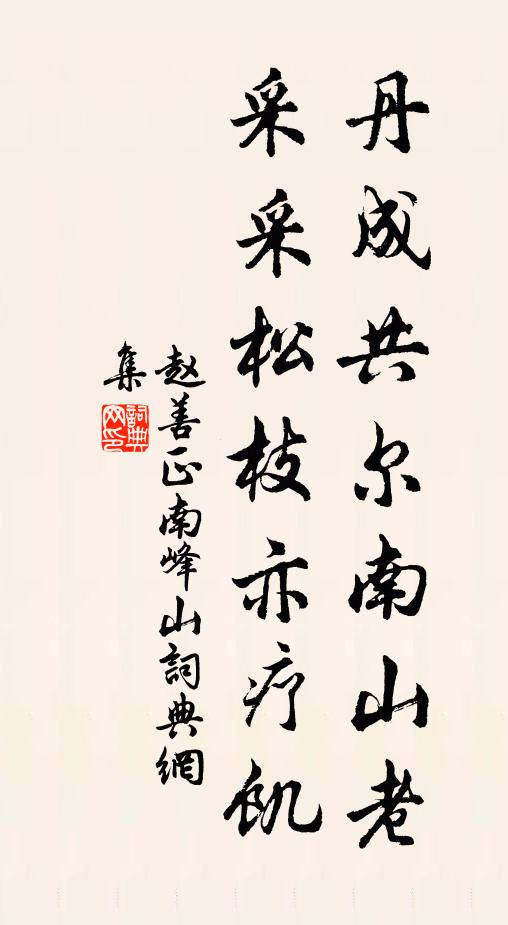 丹成共尔南山老
采采松枝亦疗飢
赵善正南峰山詞典網
集
詞典网印